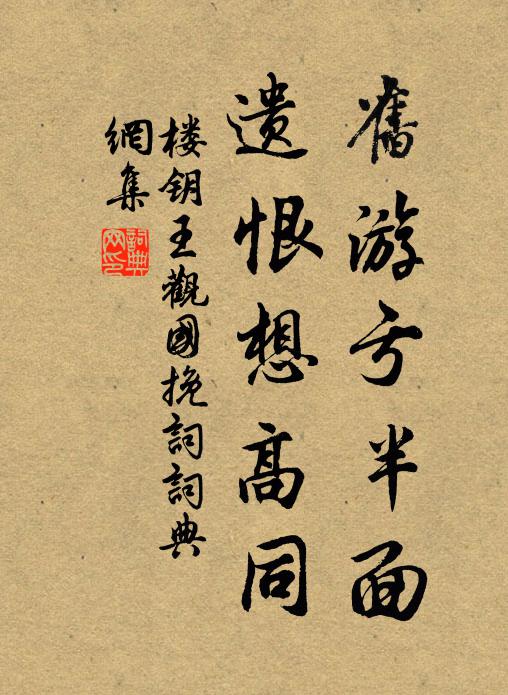 舊游亏半面
遗恨想高同
楼钥王觀國挽詞詞典
網集
詞典
网印